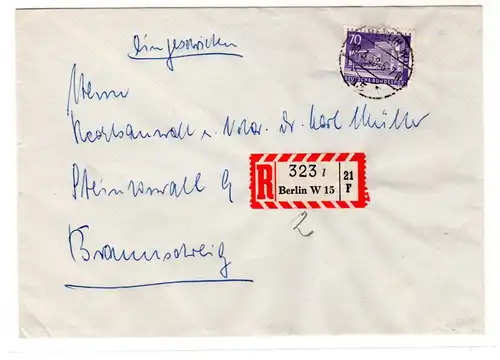 Eingeschrieben
70
DEUTSCHE BUNDESPOST
Herrn
Rechtsanwalt u. Notar Dr. Karl Müller
Steintorwall 9
Braunschweig
R 323 l 21
Berlin W 15 F
2